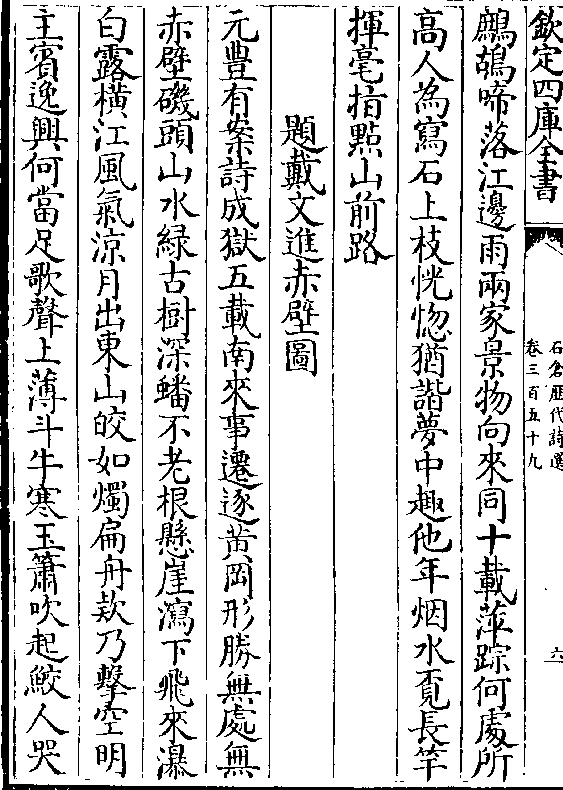 欽定四庫全書
石倉歷代詩選
卷三百五十九
六
鷓鴣啼落江邊雨兩家景物向來同十載萍踪何處所
高人為寫石上枝恍惚猶諧夢中趣他年烟水覓長竿
揮毫指點山前路
題戴文進赤壁圖
元豐有案詩成獄五載南來事遷逐黄岡形勝無處無
赤壁磯頭山水緑古樹深蟠不老根懸崖瀉下飛來瀑
白露横江風氣涼月出東山皎如燭扁舟欵乃擊空明
主賓逸興何當足歌聲上薄斗牛寒玉簫吹起鮫人哭